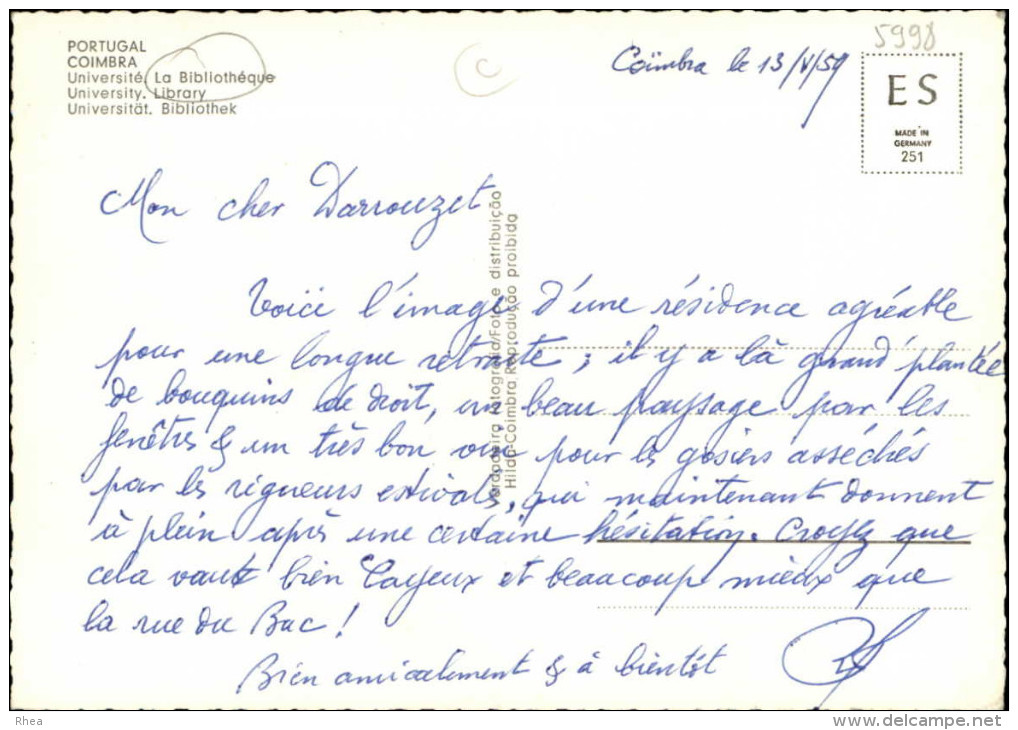 PORTUGAL
COIMBRA
Université. La Bibliothéque
University. Library
Universität. Bibliothek
C
5998
Coïmbra le 13/V/59
ES
MADE IN
GERMANY
251
Mon cher Darrouzet
Voici l'image d'une résidence agréable
pour une longue retraite ; il y a là grand' plantée
de bouquins de droit, un beau paysage par les
fenêtres & un très bon vin pour les gosiers asséchés
par les rigueurs estivales, qui maintenant donnent
à plein après une certaine hésitation. Croyez que
cela vaut bien Cayeux et beaucoup mieux que
la rue du Bac !
Bien amicalement & à bientôt
Verdadeira fotografia/Foto e distribuição
Hilda-Coimbra Reprodução proibida
Rhea
www.delcampe.net